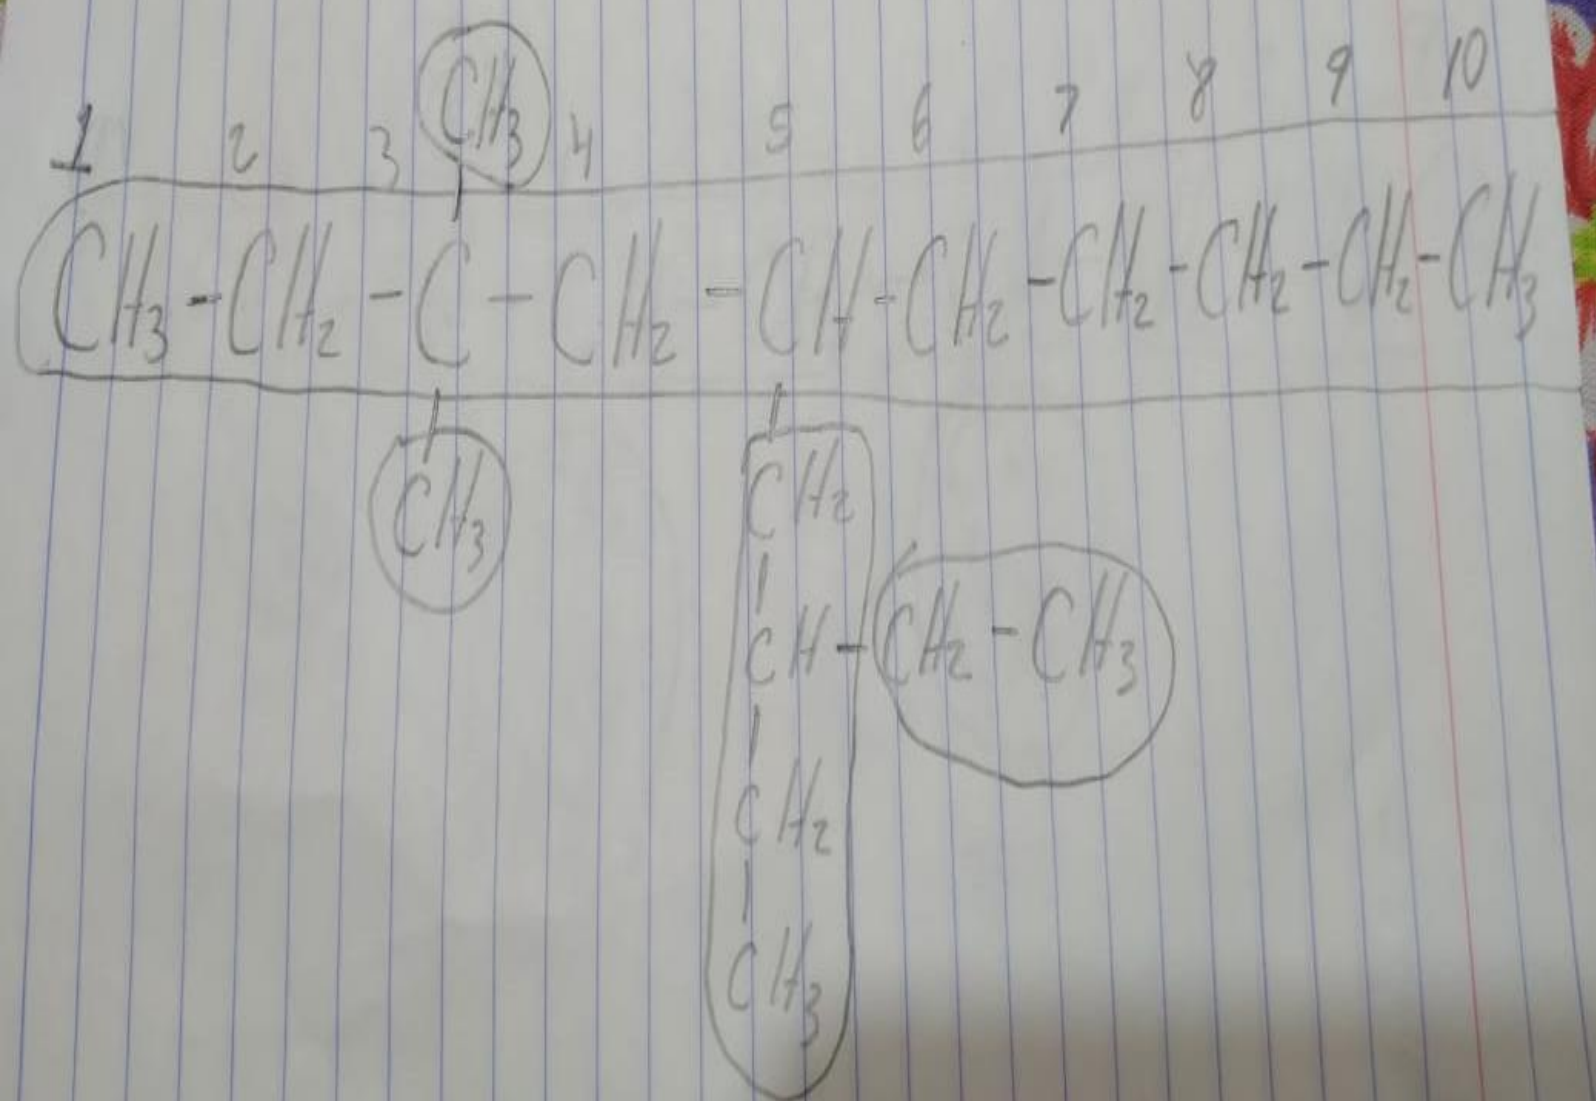 CH3
1 2 3 4 5 6 7 8 9 10
CH3-CH2-C-CH2-CH-CH2-CH2-CH2-CH2-CH3
CH3
CH2
CH-CH2-CH3
CH2
CH3